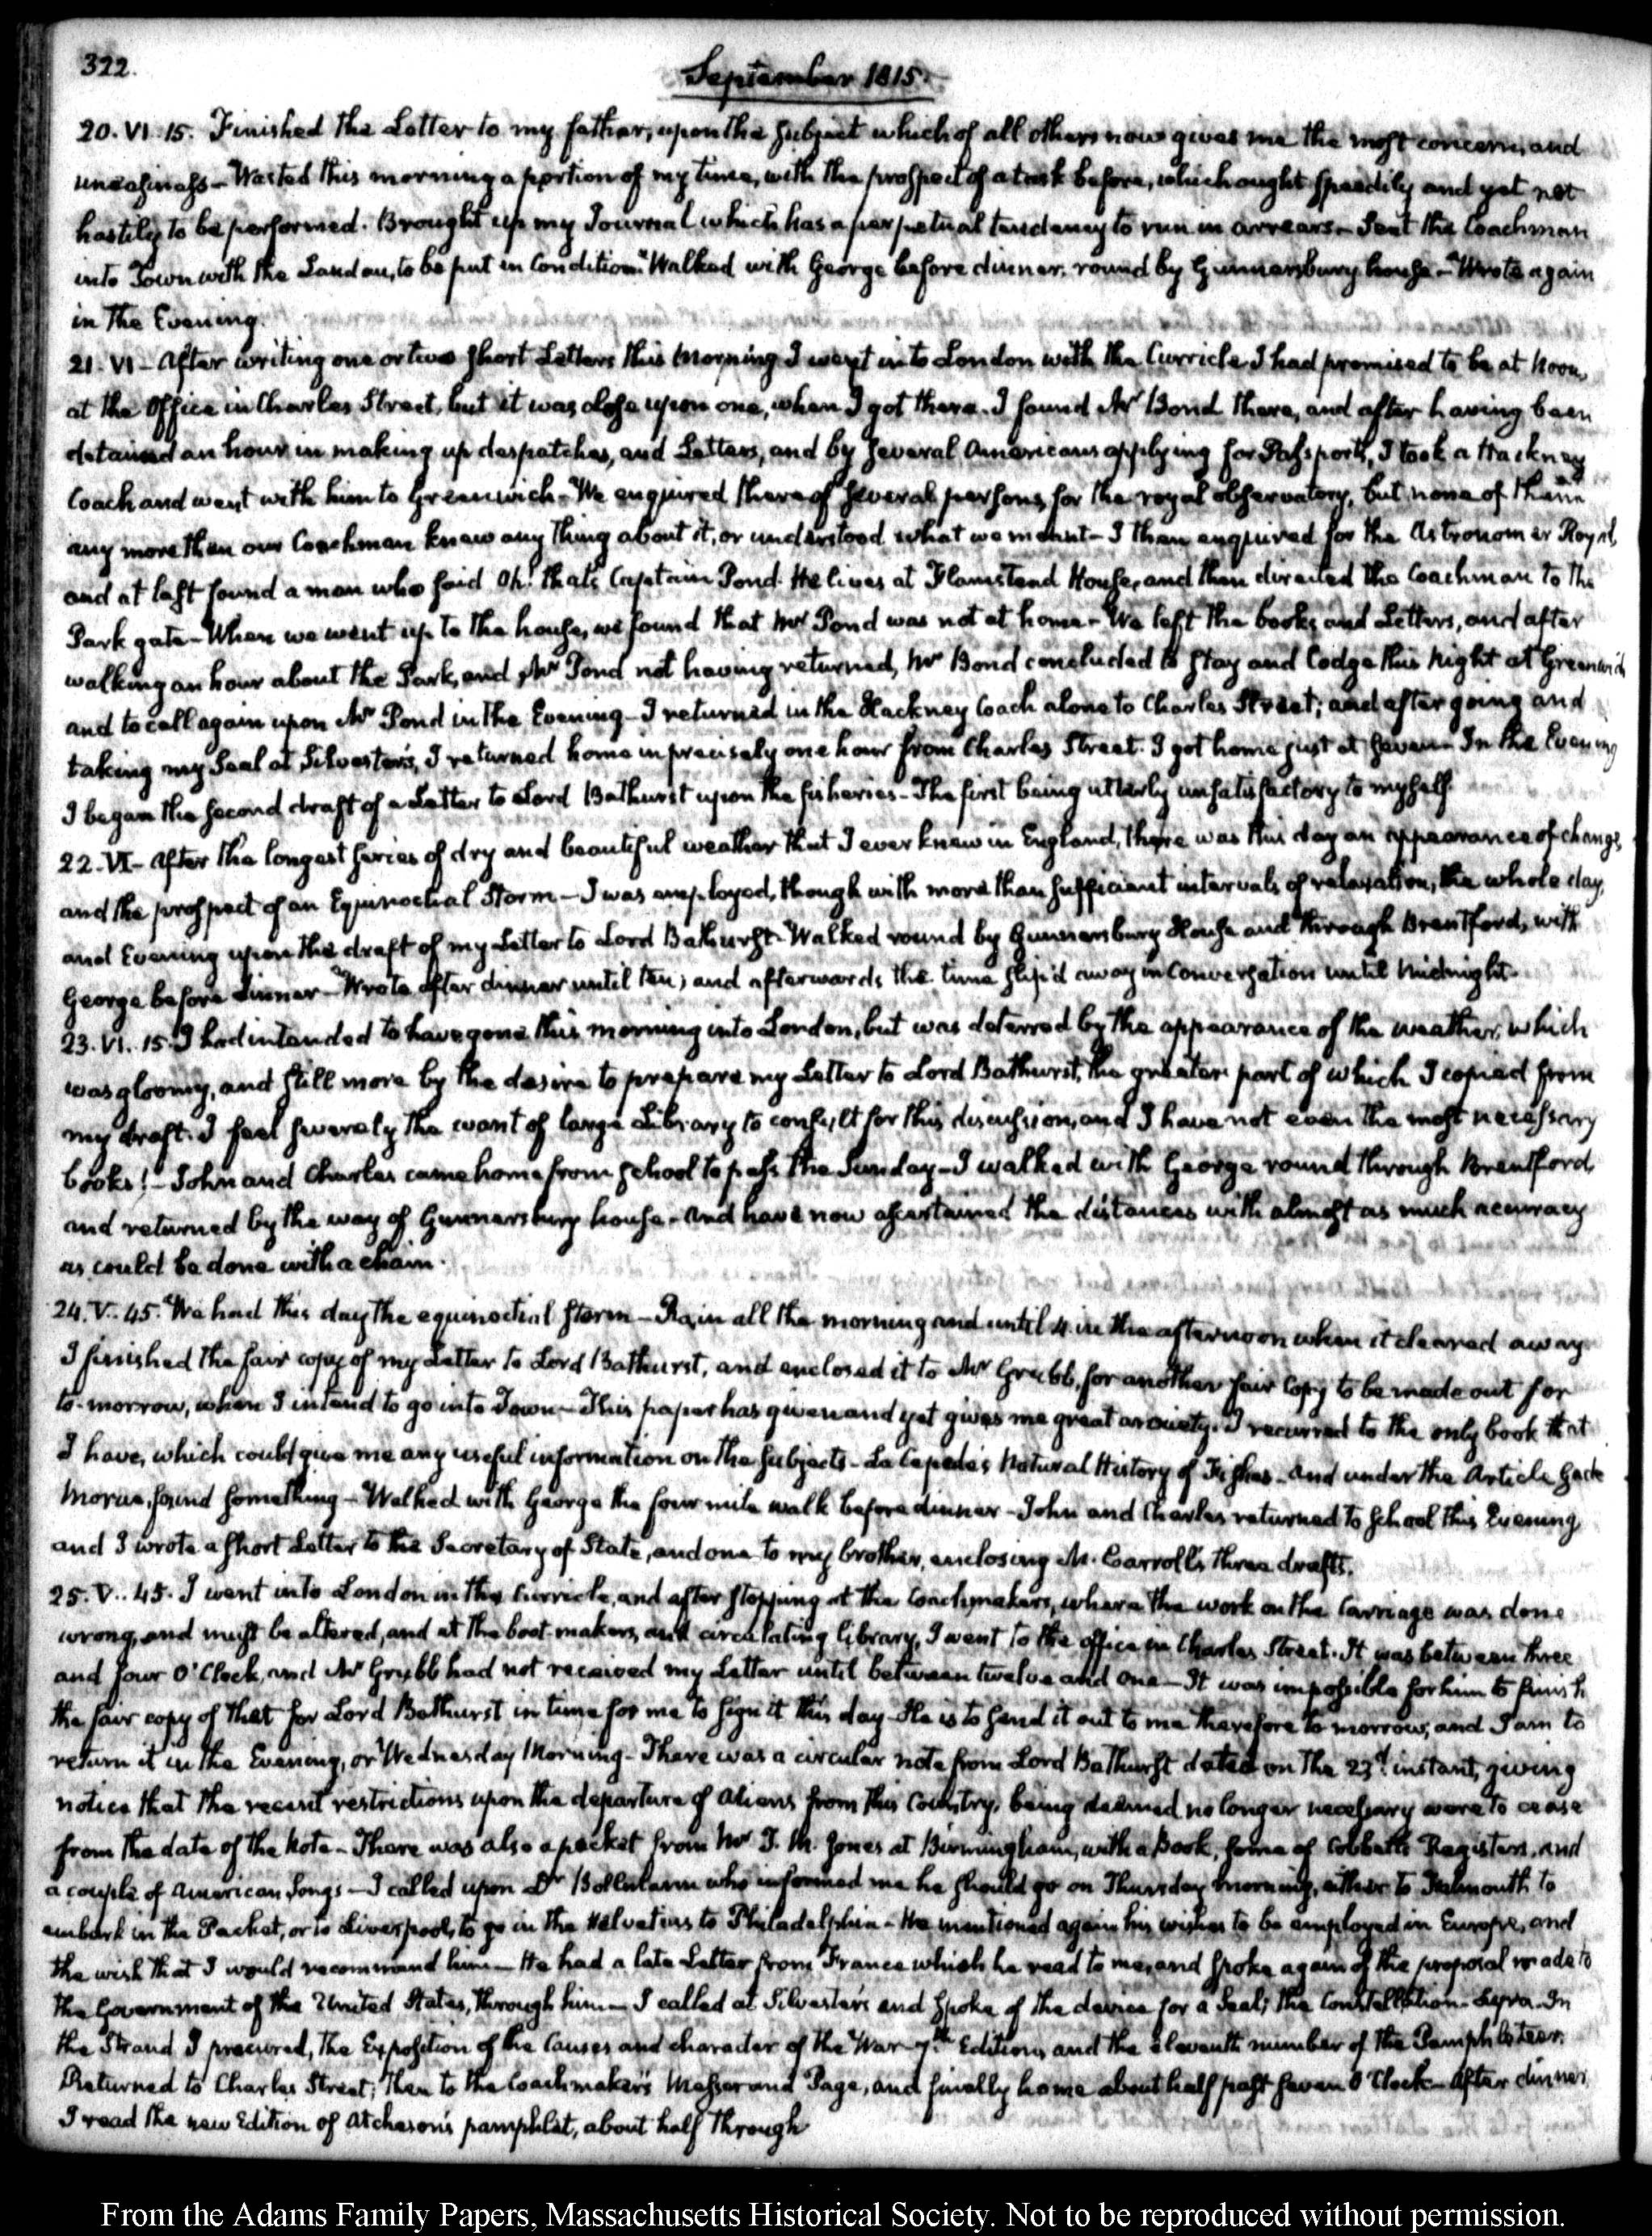 322.
September 1815.
20. VI. 15. Finished the Letter to my father, upon the subject which of all others now gives me the most concern, and
uneasiness — Wasted this morning a portion of my time, with the prospect of a task before, which ought speedily and yet not
hastily to be performed. Brought up my Journal which has a perpetual tendency to run in arrears — Sent the Coachman
into Town with the Landau, to be put in Condition. Walked with George before dinner, round by Gunnersbury house — Wrote again
in the Evening.
21. VI — After writing one or two short Letters this Morning I went into London with the Curricle I had promised to be at Noon,
at the Office in Charles Street, but it was close upon one, when I got there. I found Mr Bond there, and after having been
detained an hour in making up despatches, and Letters, and by several Americans applying for Passports, I took a Hackney
Coach and went with him to Greenwich — We enquired there of several persons, for the royal observatory, but none of them
any more than our Coachman knew any thing about it, or understood what we meant — I then enquired for the Astronomer Royal,
and at last found a man who said Oh! that's Captain Pond. He lives at Flamstead House, and then directed the Coachman to the
Park gate — When we went up to the house, we found that Mr Pond was not at home — We left the books and Letters, and after
walking an hour about the Park, and Mr Pond not having returned, Mr Bond concluded to stay and lodge this Night at Greenwich
and to call again upon Mr Pond in the Evening — I returned in the Hackney Coach alone to Charles Street; and after going and
taking my Seal at Silvester's, I returned home in precisely one hour from Charles Street. I got home just at seven — In the Evening
I began the second draft of a Letter to Lord Bathurst upon the fisheries — The first being utterly unsatisfactory to myself.
22. VI — After the longest series of dry and beautiful weather that I ever knew in England, there was this day an appearance of change,
and the prospect of an Equinoctial Storm — I was employed, though with more than sufficient intervals of relaxation, the whole day,
and Evening upon the draft of my Letter to Lord Bathurst — Walked round by Gunnersbury House and through Brentford, with
George before dinner — Wrote after dinner until ten; and afterwards the time slip'd away in Conversation until Midnight.
23. VI. 15. I had intended to have gone this morning into London, but was deterred by the appearance of the weather, which
was gloomy, and still more by the desire to prepare my Letter to Lord Bathurst, the greater part of which I copied from
my draft. I feel severely the want of large Library to consult for this discussion, and I have not even the most necessary
books! — John and Charles came home from school to pass the Sunday — I walked with George round through Brentford,
and returned by the way of Gunnersbury house — and have now ascertained the distances with almost as much accuracy
as could be done with a chain.
24. V. 45. We had this day the equinoctial storm — Rain all the morning and until 4 in the afternoon when it cleared away.
I finished the fair copy of my Letter to Lord Bathurst, and enclosed it to Mr Grubb, for another fair Copy to be made out for
to-morrow, when I intend to go into Town — This paper has given and yet gives me great anxiety. I recurred to the only book that
I have, which could give me any useful information on the subjects — La Cepede's Natural History of Fishes — and under the Article Gade
Morue, found something — Walked with George the four mile walk before dinner — John and Charles returned to school this Evening
and I wrote a short Letter to the Secretary of State, and one to my brother, enclosing Mr. Carroll's three drafts.
25. V. 45. I went into London in the Curricle, and after stopping at the Coachmakers, where the work on the Carriage was done
wrong, and must be altered, and at the boot-makers, and circulating library, I went to the office in Charles Street. It was between three
and four O'Clock, and Mr Grubb had not received my Letter until between twelve and one — It was impossible for him to finish
the fair copy of that for Lord Bathurst in time for me to sign it this day — He is to send it out to me therefore to-morrow, and I am to
return it in the Evening, or Wednesday Morning — There was a circular note from Lord Bathurst dated on the 23d. instant, giving
notice that the recent restrictions upon the departure of Aliens from this Country, being deemed no longer necessary were to cease
from the date of the Note — There was also a packet from Mr T. M. Jones at Birmingham, with a Book, some of Cobbett's Registers, and
a couple of American Songs — I called upon Dr Bollmann who informed me he should go on Thursday morning, either to Falmouth to
embark in the Packet, or to Liverpool, to go in the Helvetius to Philadelphia — He mentioned again his wishes to be employed in Europe, and
the wish that I would recommend him — He had a late Letter from France which he read to me, and spoke again of the proposal made to
the Government of the United States, through him — I called at Silvester's and spoke of the device for a Seal; the Constellation Lyra. In
the Strand I procured, the Exposition of the Causes and character of the War — 7th. Edition, and the eleventh number of the Pamphleteer.
Returned to Charles Street; then to the Coachmaker's Messer and Page, and finally home about half past seven O'Clock — After dinner
I read the new Edition of Atcheson's pamphlet, about half through
From the Adams Family Papers, Massachusetts Historical Society. Not to be reproduced without permission.